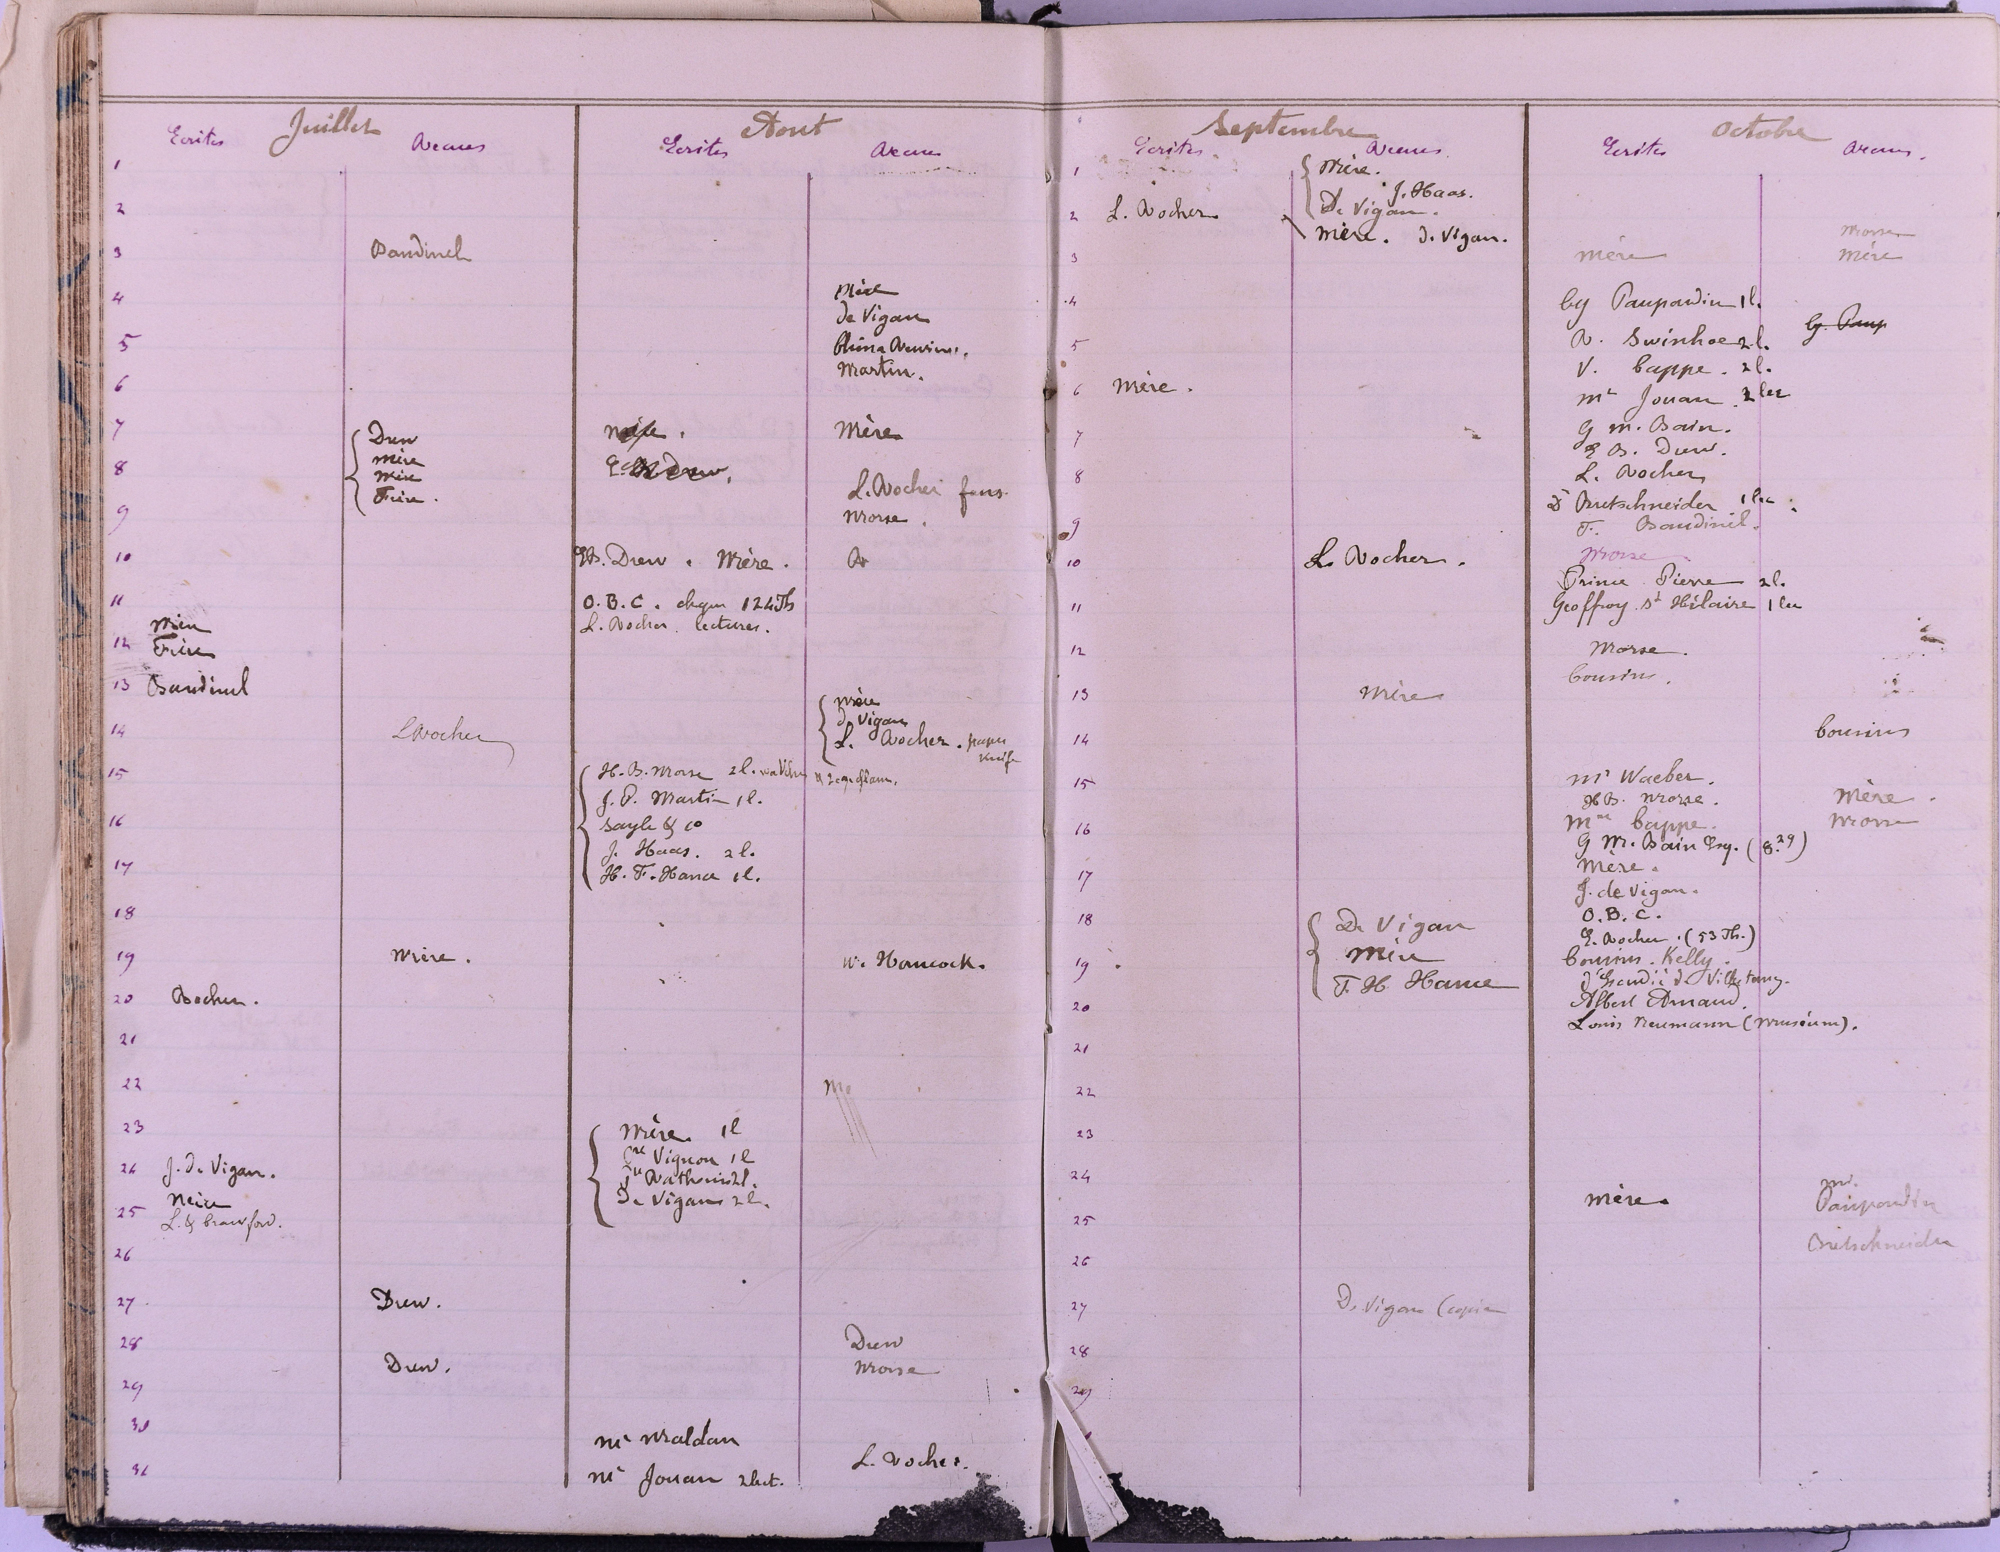 Juillet
Ecrites
Recues
1
2
3 Bandinel
4
5
6
7 Drew
Mère
8 Mère
Frère.
9
10
11
Mère
12 Frère
13 Bandinel
14 L Rocher
15
16
17
18
19 Mère.
20 Rocher.
21
22
23
24 J. de Vigan.
Mère
25 L. & Crawford.
26
27 Drew.
28
Drew.
29
30
31
Aout
Ecrites
Recues
Mère
de Vigan
China Review.
Martin.
Mère
L. Rocher fans
Morse.
E.B. Drew. Mère. R
O.B.C. cheque 124 Th
L. Rocher. lectures.
Mère
de Vigan
L. Rocher. paper
knife
H. B. Morse 2 l. watches
J. P. Martin 1 l.
Sayle & Co
J. Haas. 2 l.
H. F. Hance 1 l.
W. Hancock.
Mo
Mère 1 l
Vignon 1 l
De Vigan 2 l.
Drew
Morse
Mr Maldan
L. Rocher.
Mr Jouan 2 lect.
Septembre
Ecrites
Recues
1 Mère.
J. Haas.
De Vigan.
2 L. Rocher
Mère. de Vigan.
3
4
5
6 Mère.
7
8
9
10 L. Rocher.
11
12
13 Mère
14
15
16
17
18 De Vigan
19 Mère
F. H. Hance
20
21
22
23
24
25
26
27 De Vigan (copie
28
29
Octobre
Ecrites
Recues.
Morse
Mère Mère
Cg Paupardin 1 l.
Cg. Paup
R. Swinhoe 2 l.
V. Cappe. 2 l.
Mr Jouan. 2 lec
G. M. Bain.
E. B. Drew.
L. Rocher
Dr Bretschneider 1 lec.
F. Bandinel.
Morse
Prince Pierre 2 l.
Geoffroy St Hilaire 1 lec
Morse.
Cousins.
Cousins
Mr Waeber.
H.B. Morse. Mère.
Mme Cappe. Morse
G M. Bain Esq. (8.29)
Mère.
J. de Vigan.
O.B.C.
E. Rocher. (53 Th.)
Cousins. Kelly.
Albert Arnaud.
Louis Neumann (Muséum).
Mr.
Mère. Paupardin
Bretschneider